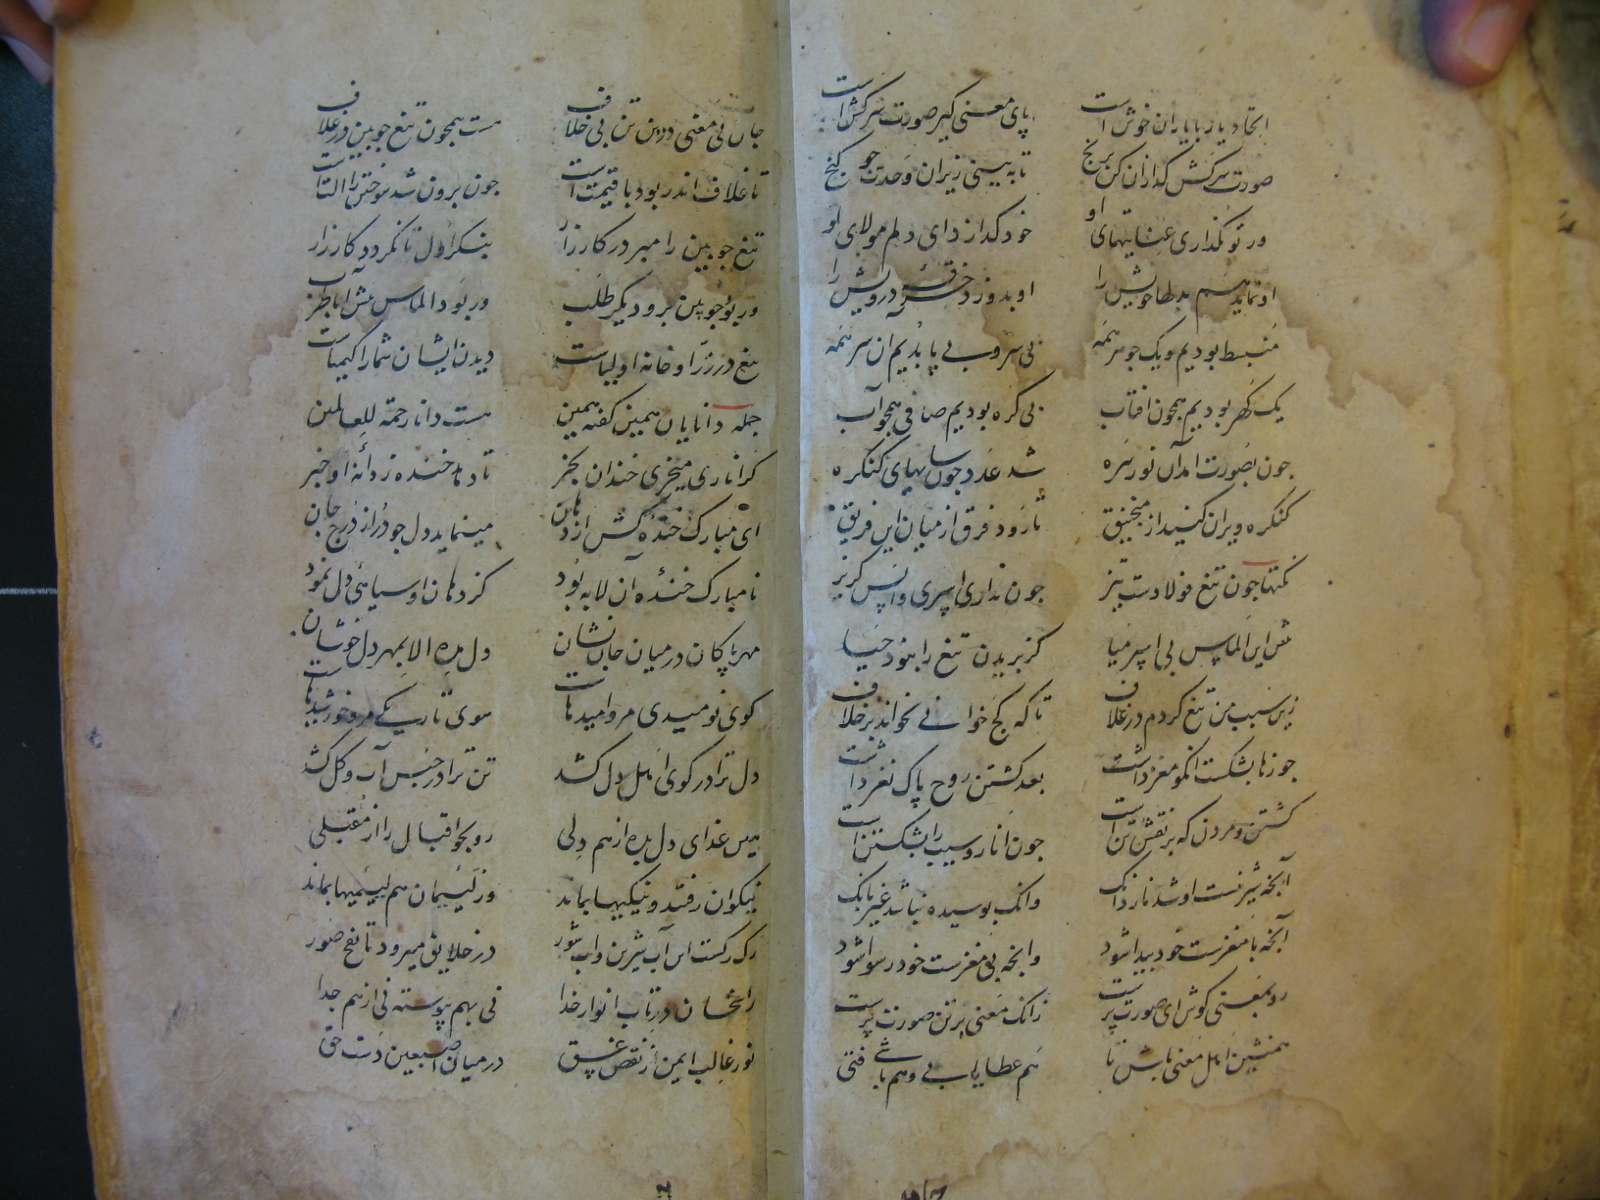 اتحاد یار با یاران خوش است پای معنی کیر صورت سرکش است
صورت سرکش کدازان کن برنج تا به بینی زیر ان وحدت جو کنج
ور تو نکذاری عنایتهای او خود کدازد ای دلم مولای او
او نماید هم بدلها خویش را او بدوزد خرقهٔ درویش را
منبسط بودیم و یک جوهر همه بی سر و بی پا بدیم ان سر همه
یک کهر بودیم همچون افتاب بی کره بودیم صافی همچو آب
جون بصورت امد آن نور سره شد عدد جون سایهای کنکره
کنکره ویران کنید از منجنیق تا رود فرق از میان این فریق
نکتها جون تیغ فولادست تیز جون نداری اسپری واپس کریز
پیش این الماس بی اسپر میا کز بریدن تیغ را نبود حیا
زین سبب من تیغ کردم در غلاف تا که کج خوانی نخواند بر خلاف
جوزها بشکست انکو مغز داشت بعد کشتن روح پاک نغز داشت
کشتن و مردن که بر نقش تن است جون انار و سیب را بشکستن است
آنچه شیرنست او شد ناردانک وانک بوسیده نباشد غیر بانک
آنچه با مغزست خود پیدا شود وانچه بی مغزست خود رسوا شود
رو بمعنی کوش ای صورت پرست زانک معنی بر تن صورت پرست
همنشین اهل معنی باش تا هم عطا یابی و هم باشی فتی
جان بی معنی درین تن بی خلاف هست همچون تیغ جوبین در غلاف
تا غلاف اندر بود با قیمت است جون برون شد سوختن را الت است
تیغ جوبین را مبر در کارزار بنکر اول تا نکردد کار زار
ور بود جوبین برو دیکر طلب ور بود الماس پیش ا با طرب
تیغ در زرادخانه اولیاست دیدن ایشان شما را کیمیاست
جمله دانایان همین کفته همین هست دانا رحمة للعالمین
کر اناری میخری خندان بخر تا دهد خنده ز دانه او خبر
ای مبارک خنده کش از دهان مینماید دل جو در از درج جان
نامبارک خندهٔ آن لاله بود کز دهان او سیاهی دل نمود
مهر پاکان در میان جان نشان دل مده الا بمهر دل خوشان
کوی نومیدی مرو امیدهاست سوی تاریکی مرو خورشیدهاست
دل ترا در کوی اهل دل کشد تن ترا در حبس آب و کل کشد
هین غذای دل بده از هم دلی رو بجو اقبال را از مقبلی
نیکوان رفتند و نیکیها بماند وز لئیمان هم لئیمیها بماند
رک رکست این آب شیرین و اب شور در خلایق میرود تا نفخ صور
در تاب انوار خدا نی بهم پیوسته نی از هم جدا
نور غالب ایمن از نقص و غسق در میان اصبعین دست حق